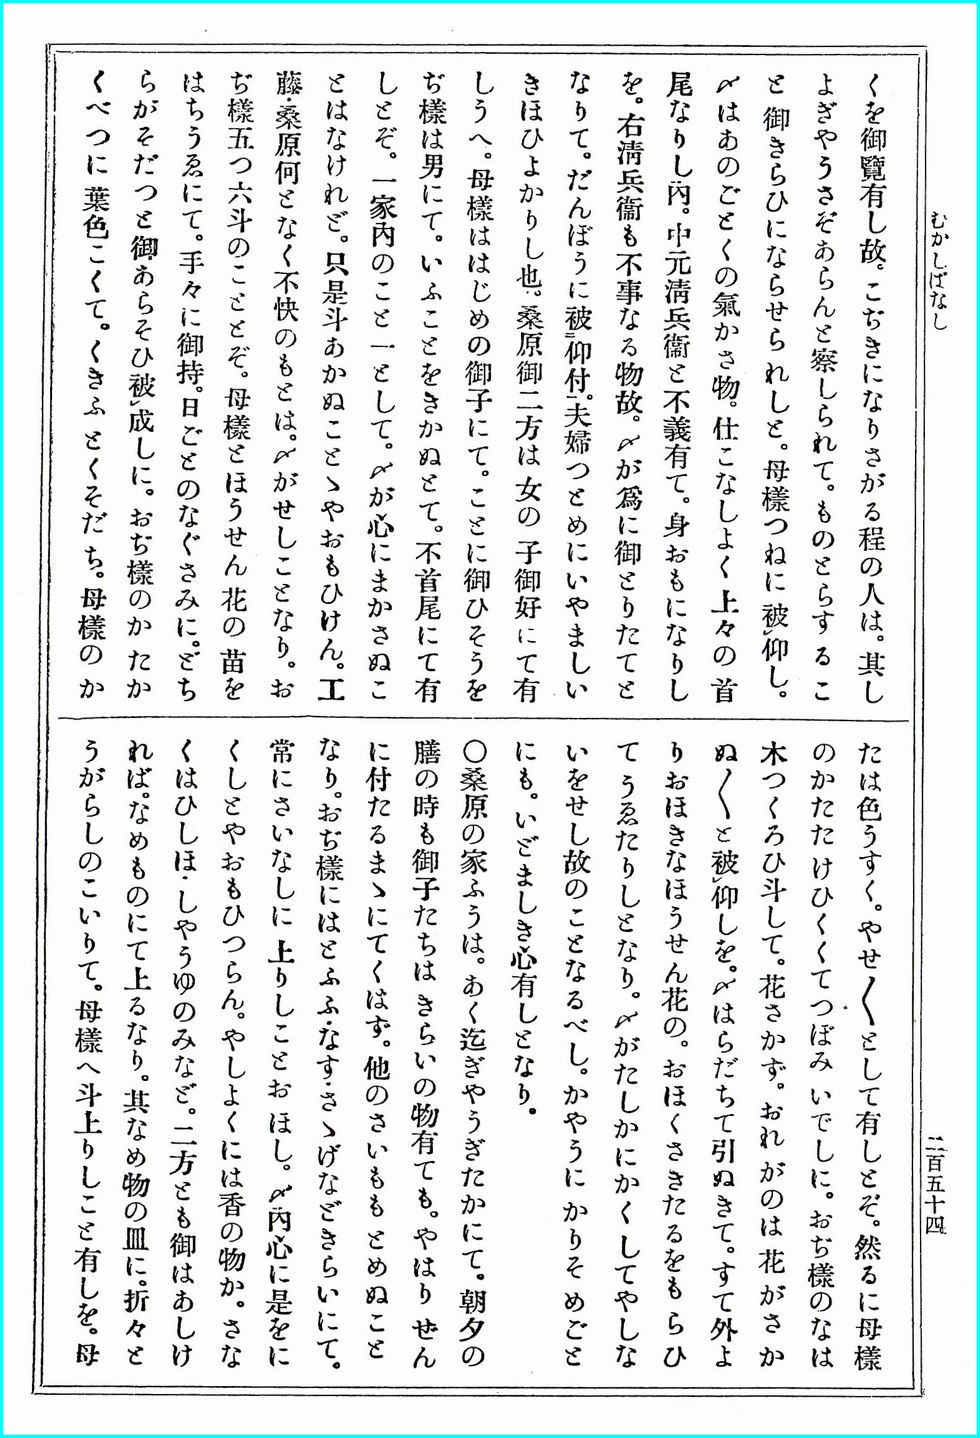 むかしばなし
くを御覽有し故。こぢきになりさがる程の人は。其し
よぎやうさぞあらんと察しられて。ものとらするこ
と御きらひにならせられしと。母樣つねに被仰し。
〆はあのごとくの氣かさ物。仕こなしよく上々の首
尾なりし內。中元淸兵衞と不義有て。身おもになりし
を。右淸兵衞も不事なる物故。〆が爲に御とりたてと
なりて。だんぼうに被仰付。夫婦つとめにいやましい
きほひよかりし也。桑原御二方は女の子御好にて有
しうへ。母樣ははじめの御子にて。ことに御ひそうを
ぢ樣は男にて。いふことをきかぬとて。不首尾にて有
しとぞ。一家內のこと一として。〆が心にまかさぬこ
とはなけれど。只是斗あかぬことゝやおもひけん。工
藤・桑原何となく不快のもとは。〆がせしことなり。お
ぢ樣五つ六斗のこととぞ。母樣とほうせん花の苗を
はちうゑにて。手々に御持。日ごとのなぐさみに。どち
らがそだつと御あらそひ被成しに。おぢ樣のかたか
くべつに葉色こくて。くきふとくそだち。母樣のか
たは色うすく。やせ〳〵として有しとぞ。然るに母樣
のかたたけひくくてつぼみいでしに。おぢ樣のなは
木つくろひ斗して。花さかず。おれがのは花がさか
ぬ〳〵と被仰しを。〆はらだちて引ぬきて。すて外よ
りおほきなほうせん花の。おほくさきたるをもらひ
てうゑたりしとなり。〆がたしかにかくしてやしな
いをせし故のことなるべし。かやうにかりそめごと
にも。いどましき心有しとなり。
〇桑原の家ふうは。あく迄ぎやうぎたかにて。朝夕の
膳の時も御子たちはきらいの物有ても。やはりぜん
に付たるまゝにてくはず。他のさいももとめぬこと
なり。おぢ樣にはとふふ・なす・さゝげなどきらいにて。
常にさいなしに上りしことおほし。〆內心に是をに
くしとやおもひつらん。やしよくには香の物か。さな
くはひしほ・しやうゆのみなど。二方とも御はあしけ
れば。なめものにて上るなり。其なめ物の皿に。折々と
うがらしのこいりて。母樣へ斗上りしこと有しを。母
二百五十四